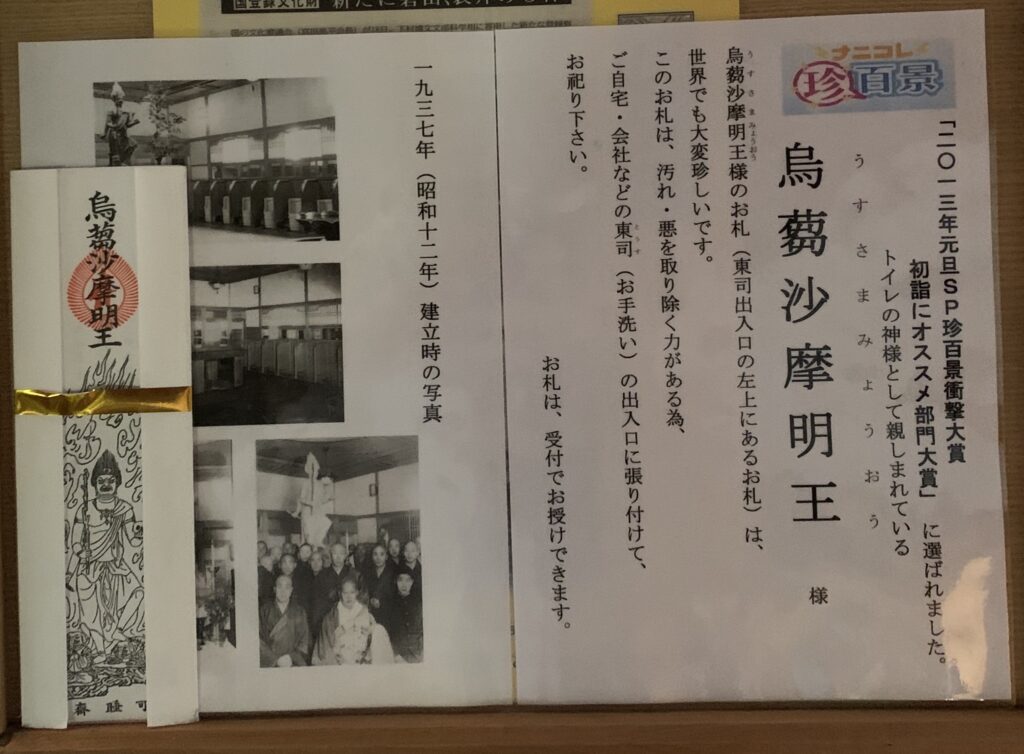 国登録文化財
ナニコレ
珍百景
「二〇一三年元旦SP珍百景衝撃大賞
初詣にオススメ部門大賞」に選ばれました。
トイレの神様として親しまれている
うすさまみょうおう
烏蒭沙摩明王 様
うすさまみょうおう
烏蒭沙摩明王様のお札(東司出入口の左上にあるお札)は、
世界でも大変珍しいです。
このお札は、汚れ・悪を取り除く力がある為、
とうす
ご自宅・会社などの東司(お手洗い)の出入口に張り付けて、
お祀り下さい。
お札は、受付でお授けできます。
一九三七年(昭和十二年)建立時の写真
烏蒭沙摩明王
可睡齋